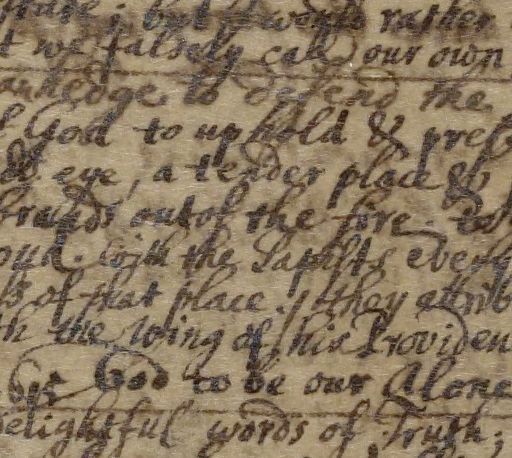 ; but I would rather
we falsely call our own
to defend the
God to uphold & pres
eye, a tender place &
brands out of the fire.
with the Papists every
of that place. they attrib
the Wing of his Providen
God to be our Alone
delightful words of Truth;